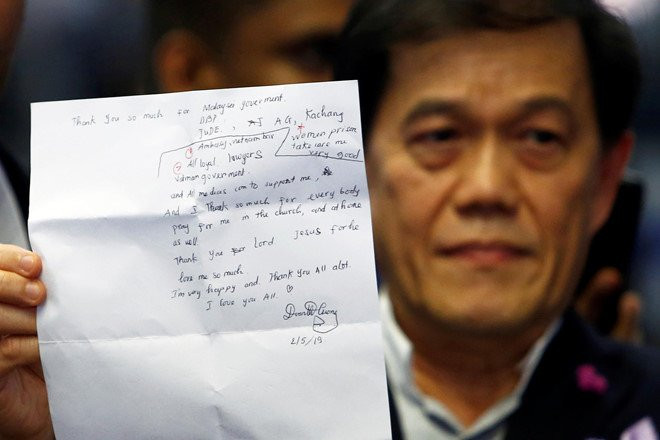 Thank You so much for Malaysia goverment.
JUDE, I AG, Kachang
Ambassy, vietnam box women prison
take care me
All loyal lowyers very good
vietnam government.
and All medias com to support me,
And I Thank so much for every body
pray for me in the church, and at home
as well.
Thank you for Lord Jesus for he
love me so much
I'm very happy and. Thank You All alot.
I love you All. ♡
2/5/19